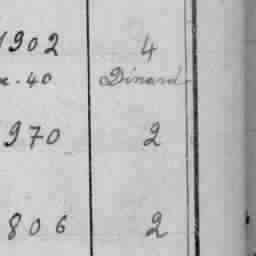 1902 4
x-40 Dinard
970 2
806 2